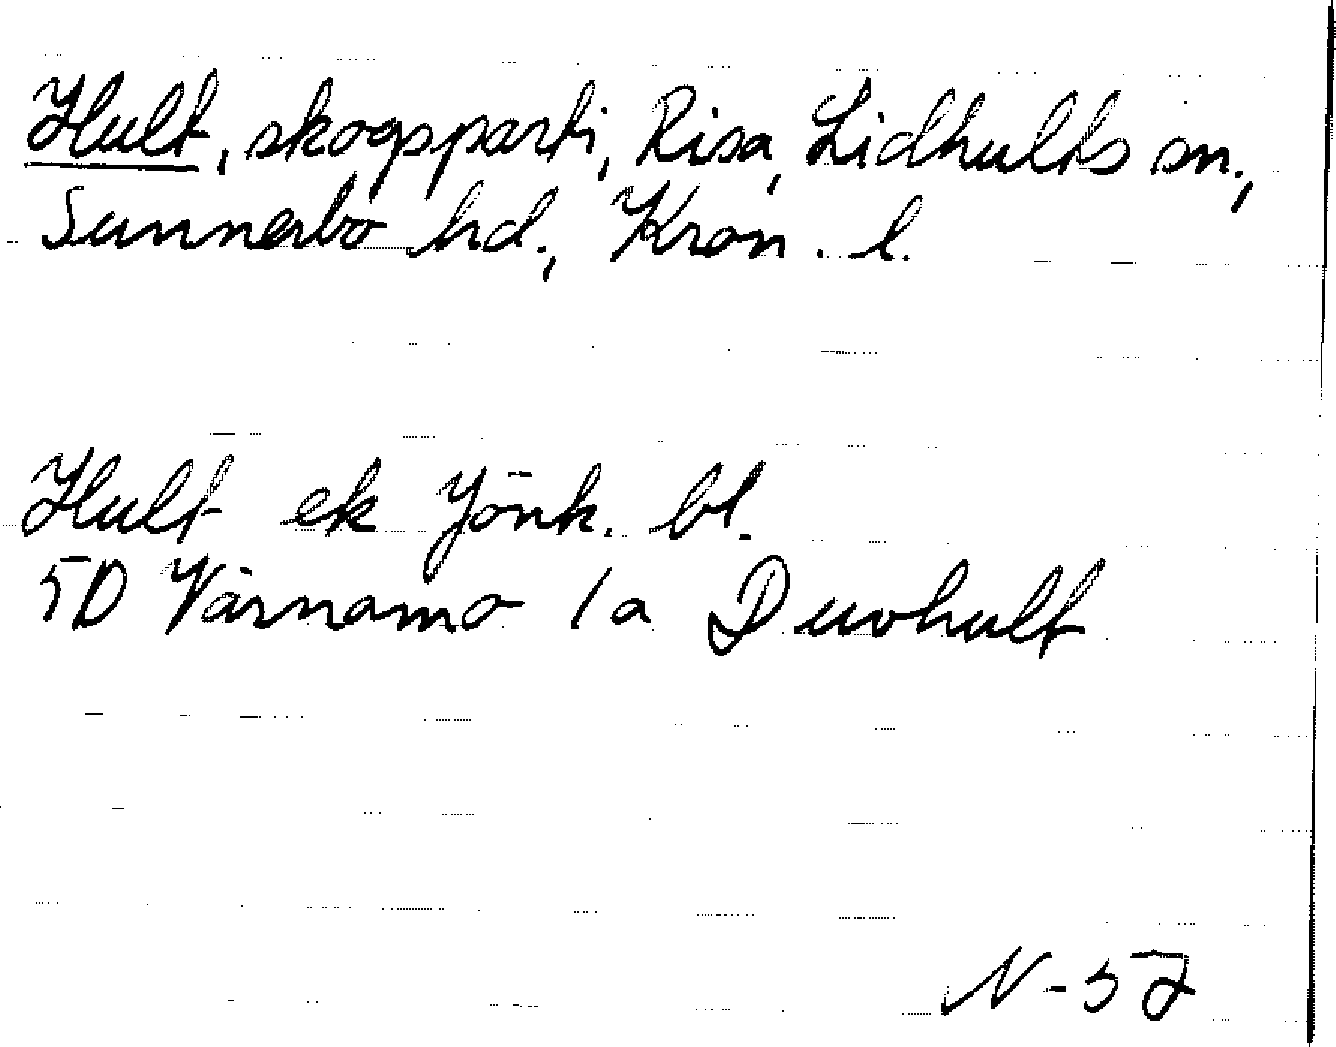 Hult, skogsparti, Risa, Lidhults sn.,
Sunnerbo hd., Kron. l.
Hult ek Jönk. bl.
5D Värnamo 1a Duvhult
N-57